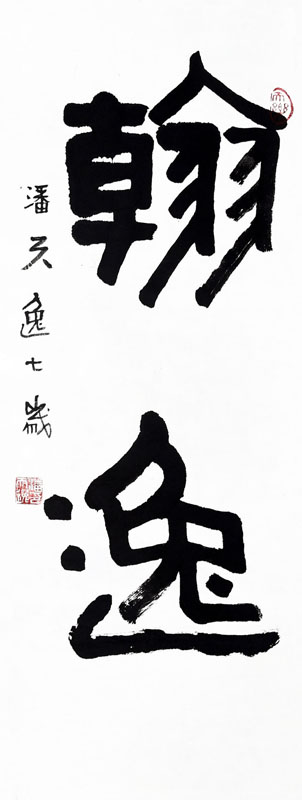 翰逸
潘天逸七歲